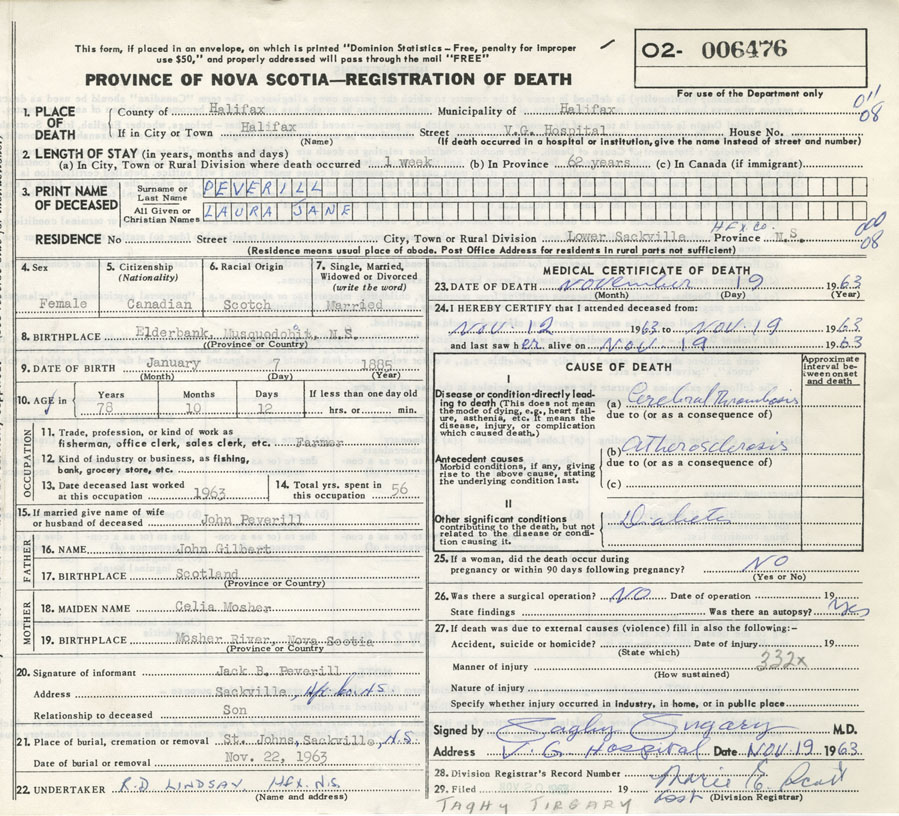 This form, if placed in an envelope, on which is printed "Dominion Statistics – Free, penalty for improper
use $50," and properly addressed will pass through the mail "FREE"
O2- 006476
PROVINCE OF NOVA SCOTIA—REGISTRATION OF DEATH
For use of the Department only
1. PLACE OF DEATH
County of Halifax Municipality of Halifax
011 08
If in City or Town Halifax Street V.G. Hospital House No.
(Name) (If death occurred in a hospital or institution, give the name instead of street and number)
2. LENGTH OF STAY (in years, months and days)
(a) In City, Town or Rural Division where death occurred 1 week (b) In Province 62 years (c) In Canada (if immigrant)
3. PRINT NAME OF DECEASED
Surname or Last Name PEVERILL
All Given or Christian Names LAURA JANE
RESIDENCE No Street City, Town or Rural Division Lower Sackville Hfx Co. Province N.S.
000 08
(Residence means usual place of abode. Post Office Address for residents in rural parts not sufficient)
4. Sex
Female
5. Citizenship (Nationality)
Canadian
6. Racial Origin
Scotch
7. Single, Married, Widowed or Divorced (write the word)
Married
8. BIRTHPLACE Elderbank, Musquodobit, N.S.
(Province or Country)
9. DATE OF BIRTH January 7 1885
(Month) (Day) (Year)
10. AGE in Years 78 Months 10 Days 12 If less than one day old hrs. or min.
OCCUPATION
11. Trade, profession, or kind of work as
fisherman, office clerk, sales clerk, etc. Farmer
12. Kind of industry or business, as fishing,
bank, grocery store, etc.
13. Date deceased last worked at this occupation 1963
14. Total yrs. spent in this occupation 56
15. If married give name of wife
or husband of deceased John Peverill
FATHER
16. NAME John Gilbert
17. BIRTHPLACE Scotland
(Province or Country)
MOTHER
18. MAIDEN NAME Celia Mosher
19. BIRTHPLACE Mosher River, Nova Scotia
(Province or Country)
20. Signature of informant Jack B. Peverill
Address Sackville, Hfx. Co. N.S.
Relationship to deceased Son
21. Place of burial, cremation or removal St. Johns, Sackville, N.S.
Date of burial or removal Nov. 22, 1963
22. UNDERTAKER R.D LINDSAY Hfx. N.S.
(Name and address)
MEDICAL CERTIFICATE OF DEATH
23. DATE OF DEATH November 19 1963
(Month) (Day) (Year)
24. I HEREBY CERTIFY that I attended deceased from:
Nov. 12 1963 to Nov. 19 1963
and last saw her alive on Nov 19 1963
CAUSE OF DEATH
Approximate interval between onset and death
I
Disease or condition-directly leading to death (This does not mean the mode of dying, e.g., heart failure, asthenia, etc. It means the disease, injury, or complication which caused death.)
(a) Cerebral thrombosis
due to (or as a consequence of)
Antecedent causes
Morbid conditions, if any, giving rise to the above cause, stating the underlying condition last.
(b) Atherosclerosis
due to (or as a consequence of)
(c)
II
Other significant conditions
contributing to the death, but not related to the disease or condition causing it.
Diabetes
25. If a woman, did the death occur during
pregnancy or within 90 days following pregnancy? NO
(Yes or No)
26. Was there a surgical operation? NO Date of operation 19
State findings Was there an autopsy? Yes
27. If death was due to external causes (violence) fill in also the following:–
Accident, suicide or homicide? Date of injury 19
(State which)
332x
Manner of injury
(How sustained)
Nature of injury
Specify whether injury occurred in industry, in home, or in public place
Signed by Taghy Tirgary M.D.
Address V. G. Hospital Date NOV 19 1963
28. Division Registrar's Record Number
29. Filed 19 Marie E.
(Division Registrar)
TAGHY TIRGARY